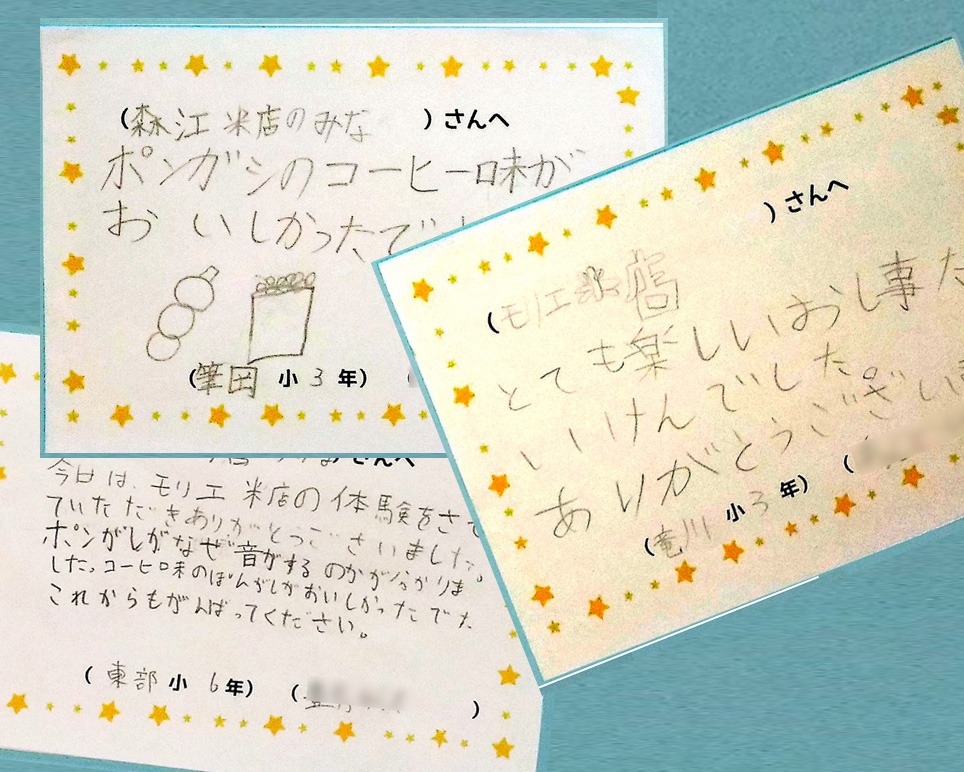 (森江米店のみな)さんへ
ポンガシのコーヒー味が
おいしかったで
(筆田小3年)
)さんへ
(モリエ米店
とても楽しいおし事た
いけんでした。
ありがとうござい
(竜川小3年)(
さんへ
今日は、モリエ米店の体験をさ
ていただきありがとうございました。
ポンがしがなぜ音がするのかが分かりま
した。コーヒー味のぽんがしがおいしかったでた
これからもがんばってください。
(東部小6年)( )